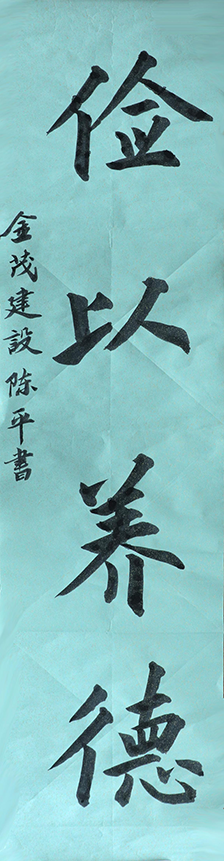 俭以养德
金茂建設陈平書